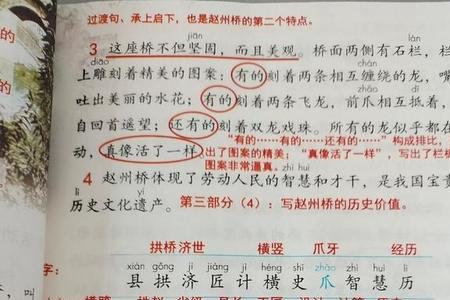 的
过渡句、承上启下，也是赵州桥的第二个特点。
jiàn lán
3 这座桥不但坚固，而且美观。桥面两侧有石栏，栏
diāo chán
上雕刻着精美的图案：有的刻着两条相互缠绕的龙，嘴
zhǎo dǐ
吐出美丽的水花；有的刻着两条飞龙，前爪相互抵着，
自回首遥望；还有的刻着双龙戏珠。所有的龙似乎都在
“有的……有的……还有的……”构成排比，
动，真像活了一样。
出了图案的精美；“真像活了一样”，写出了栏板
图案非常逼真。
zhì huì
4 赵州桥体现了劳动人民的智慧和才干，是我国宝贵
lì yí
历史文化遗产。 第三部分（4）：写赵州桥的历史价值。
拱桥济世 横竖 爪牙 经历
字：
xiàn gǒng jì jiàng jì héng shǐ zhǎo zhì huì lì
县 拱 济 匠 计 横 史 爪 智 慧 历
叫